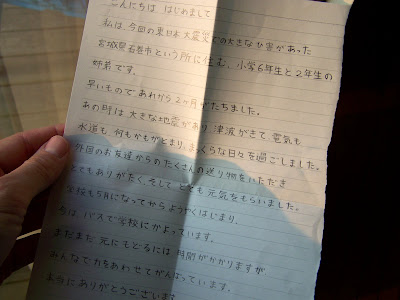 こんにちは はじめまして
私は、今回の東日本大震災での大きなひ害があった
宮城県石巻市という所に住む、小学6年生と2年生の
姉弟です。
早いもので あれから2ヶ月がたちました。
あの時は大きな地震があり 津波がきて、電気も
水道も、何もかもがとまり、まっくらな日々を過ごしました。
外国のお友達からのたくさんの送り物をいただき
とてもありがたく、そして とても元気をもらいました。
学校も5月になってからようやくはじまり、
今は、バスで学校にかよっています。
まだまだ 元にもどるには 時間がかかりますが
みんなで力をあわせてがんばっています。
本当にありがとうございます